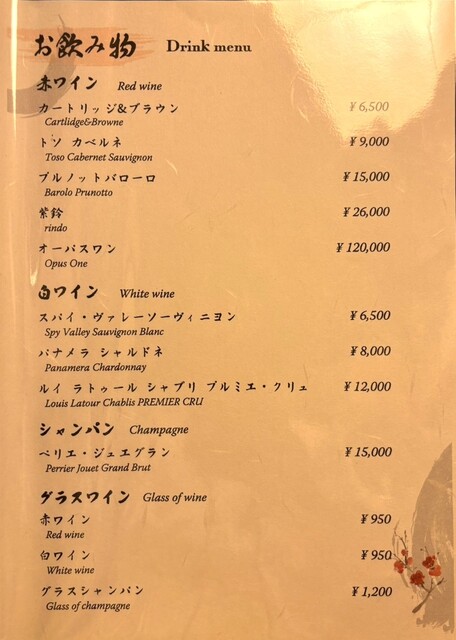 お飲み物 Drink menu
赤ワイン Red wine
カートリッジ&ブラウン ¥6,500
Cartlidge&Browne
トソ カベルネ ¥9,000
Toso Cabernet Sauvignon
プルノットバローロ ¥15,000
Barolo Prunotto
紫鈴 ¥26,000
rindo
オーパスワン ¥120,000
Opus One
白ワイン White wine
スパイ・ヴァレーソーヴィニヨン ¥6,500
Spy Valley Sauvignon Blanc
パナメラ シャルドネ ¥8,000
Panamera Chardonnay
ルイ ラトゥール シャブリ プルミエ・クリュ ¥12,000
Louis Latour Chablis PREMIER CRU
シャンパン Champagne
ペリエ・ジュエグラン ¥15,000
Perrier Jouet Grand Brut
グラスワイン Glass of wine
赤ワイン ¥950
Red wine
白ワイン ¥950
White wine
グラスシャンパン ¥1,200
Glass of champagne